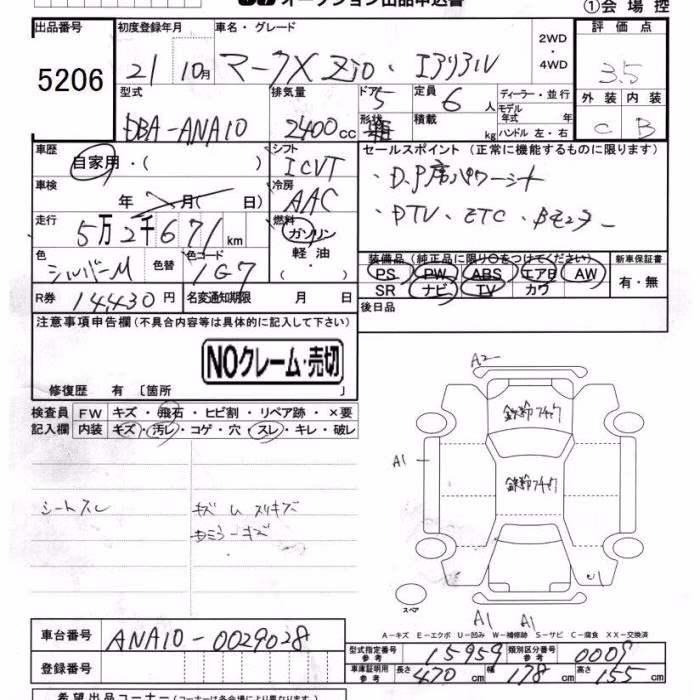 オークション出品申込書
①会場控
出品番号 初度登録年月 車名・グレード 2WD・4WD 評価点
5206 21 10月 マークX Zio・エアリアル 3.5
型式 排気量 ドア 定員 ディーラー・並行 外装 内装
DBA-ANA10 2400cc 5 6人 モデル年式 年 C B
形状 積載 kg ハンドル 左・右
車歴 シフト セールスポイント (正常に機能するものに限ります)
自家用・( ) ICVT ・D.P席パワーシート
車検 年 月( 日) 冷房 AAC ・DTV、ETC、Bモニター
走行 5万2千671km 燃料 ガソリン
軽油
・( )
色 シルバーM 色替 色コード 1G7
装備品 (純正品に限り○をつけてください) 新車保証書
PS PW ABS エアB AW 有・無
SR ナビ TV カワ
R券 14,430円 名変通知期限 月 日 後日品
注意事項申告欄(不具合内容等は具体的に記入して下さい)
NOクレーム・売切
修復歴 有 〔箇所 〕
検査員 FW キズ・飛石・ヒビ割・リペア跡・×要
記入欄 内装 キズ・汚レ・コゲ・穴・スレ・キレ・破レ
A2
鉄粉
A1 鉄粉
シートスレ キズ ム スリキズ
スペア
A1 A1
A-キズ E-エクボ U-凹み W-補修跡 S-サビ C-腐食 XX-交換済
車台番号 ANA10-0029028
型式指定番号 参考 15959 類別区分番号 参考 0009
登録番号
車庫証明用 参考 長さ 470cm 幅 178cm 高さ 155cm
希望出品コーナー(コーナーは各会場により異なります。)